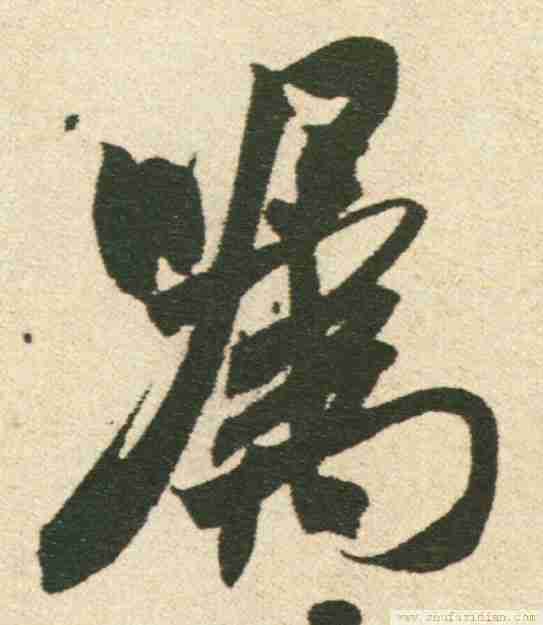 嘱
www.shufazidian.com